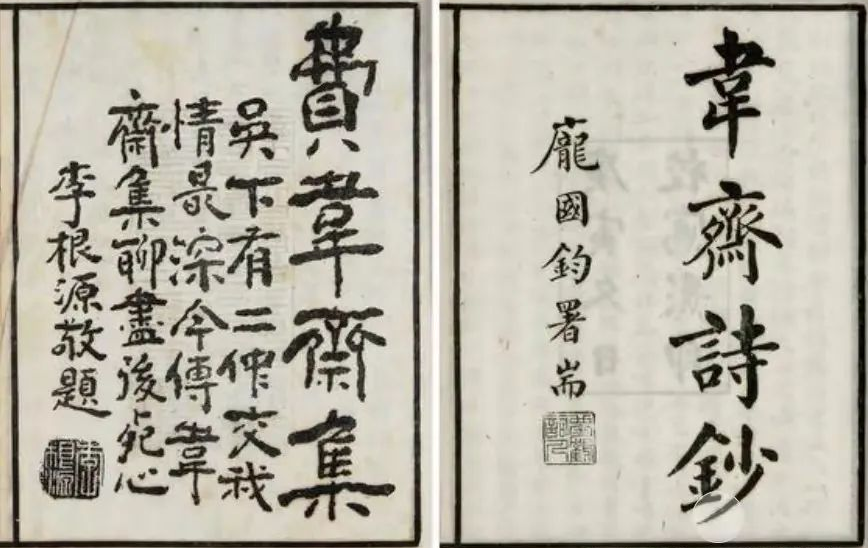 費韋齋集
吳下有二仲交我
情最深今傳韋
齋集聊盡後死心
李根源敬題
韋齋詩鈔
龐國鈞署耑